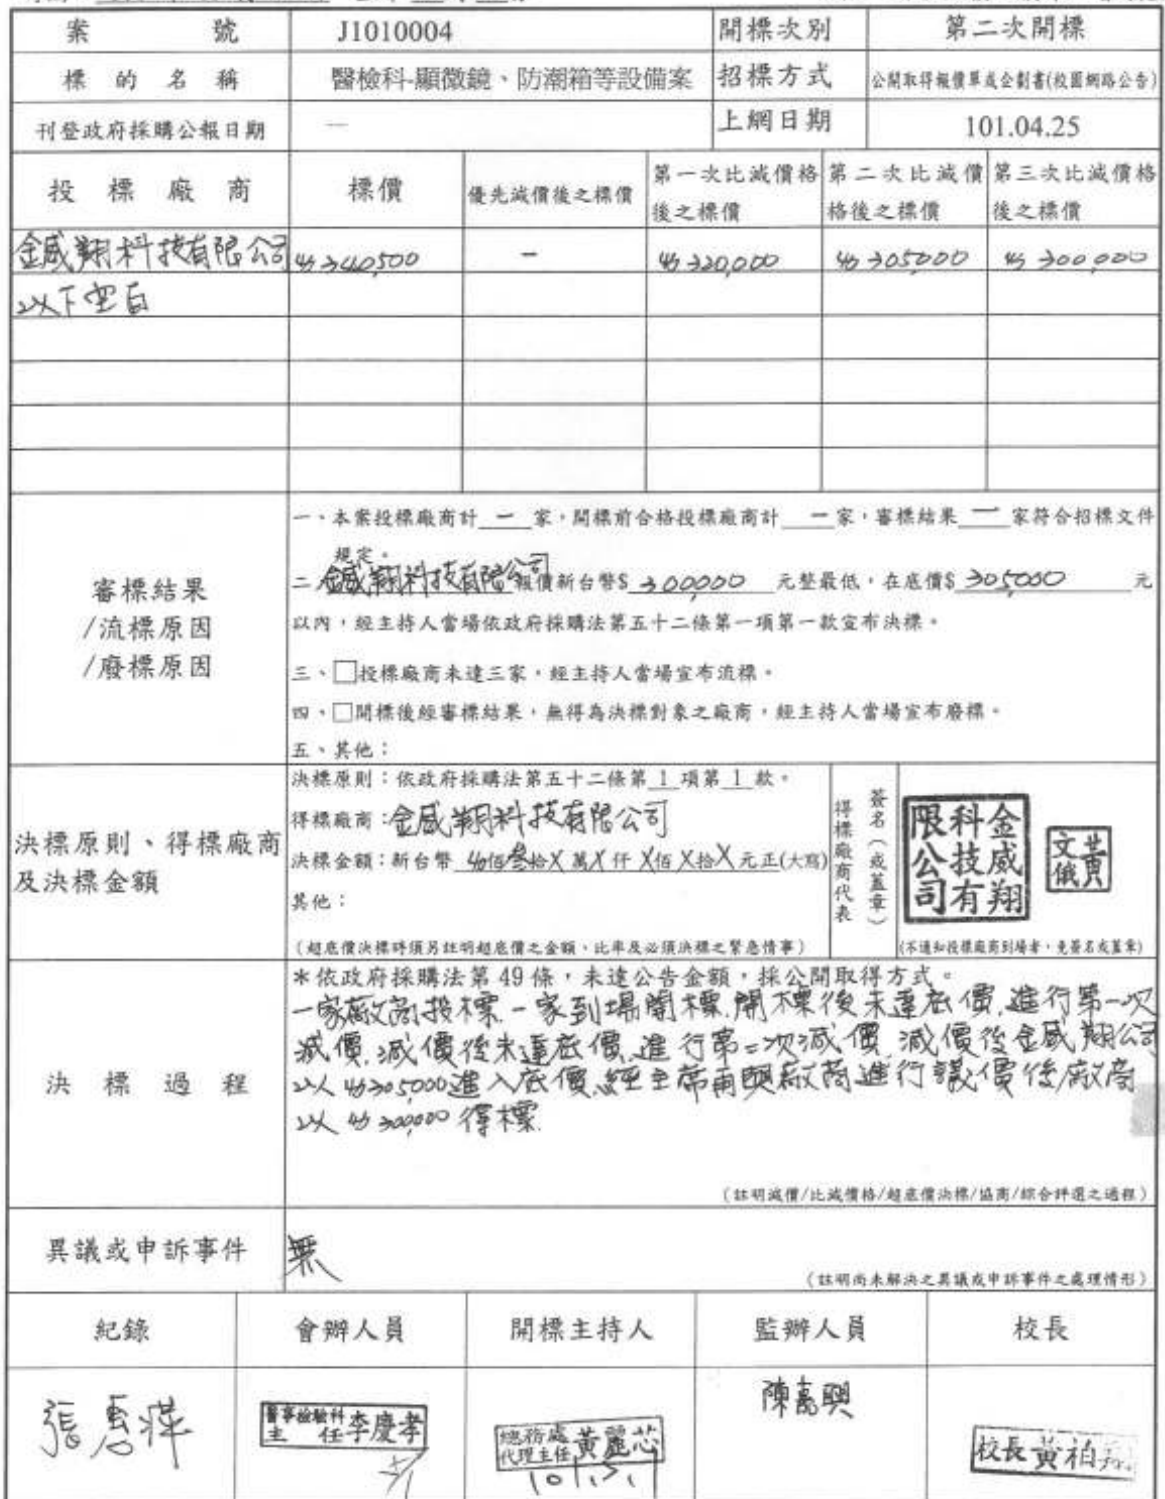 案號 J1010004 開標次別 第二次開標
標的名稱 醫檢科-顯微鏡、防潮箱等設備案 招標方式 公開取得報價單或企劃書(校園網路公告)
刊登政府採購公報日期 — 上網日期 101.04.25
投標廠商 標價 優先減價後之標價 第一次比減價格後之標價 第二次比減價格後之標價 第三次比減價格後之標價
金威翔科技有限公司 340,500 — 320,000 305,000 300,000
以下空白
一、本案投標廠商計 一 家,開標前合格投標廠商計 一 家,審標結果 一 家符合招標文件
規定。
審標結果
/流標原因
/廢標原因
二、金威翔科技有限公司 報價新台幣$ 300,000 元整最低,在底價$ 305,000 元
以內,經主持人當場依政府採購法第五十二條第一項第一款宣布決標。
三、□投標廠商未達三家,經主持人當場宣布流標。
四、□開標後經審標結果,無得為決標對象之廠商,經主持人當場宣布廢標。
五、其他:
決標原則、得標廠商
及決標金額
決標原則:依政府採購法第五十二條第 1 項第 1 款。
得標廠商:金威翔科技有限公司
決標金額:新台幣 佰叁拾X萬X仟X佰X拾X元正(大寫)
其他:
(超底價決標時須另註明超底價之金額、比率及必須決標之緊急情事)
得標廠商代表
簽名(或蓋章)
金威翔
科技有
限公司
黃
文俄
(不通知投標廠商到場者,免簽名或蓋章)
決標過程
*依政府採購法第49條,未達公告金額,採公開取得方式。
一家廠商投標.一家到場開標.開標後未達底價.進行第一次
減價.減價後未達底價.進行第二次減價.減價後金威翔公司
以305,000進入底價.經主席再與廠商進行議價後廠商
以300,000得標.
(註明減價/比減價格/超底價決標/協商/綜合評選之過程)
異議或申訴事件 無
(註明尚未解決之異議或申訴事件之處理情形)
紀錄 會辦人員 開標主持人 監辦人員 校長
醫事檢驗科
主任 李慶孝
總務處
代理主任 黃麗芯
校長 黃柏